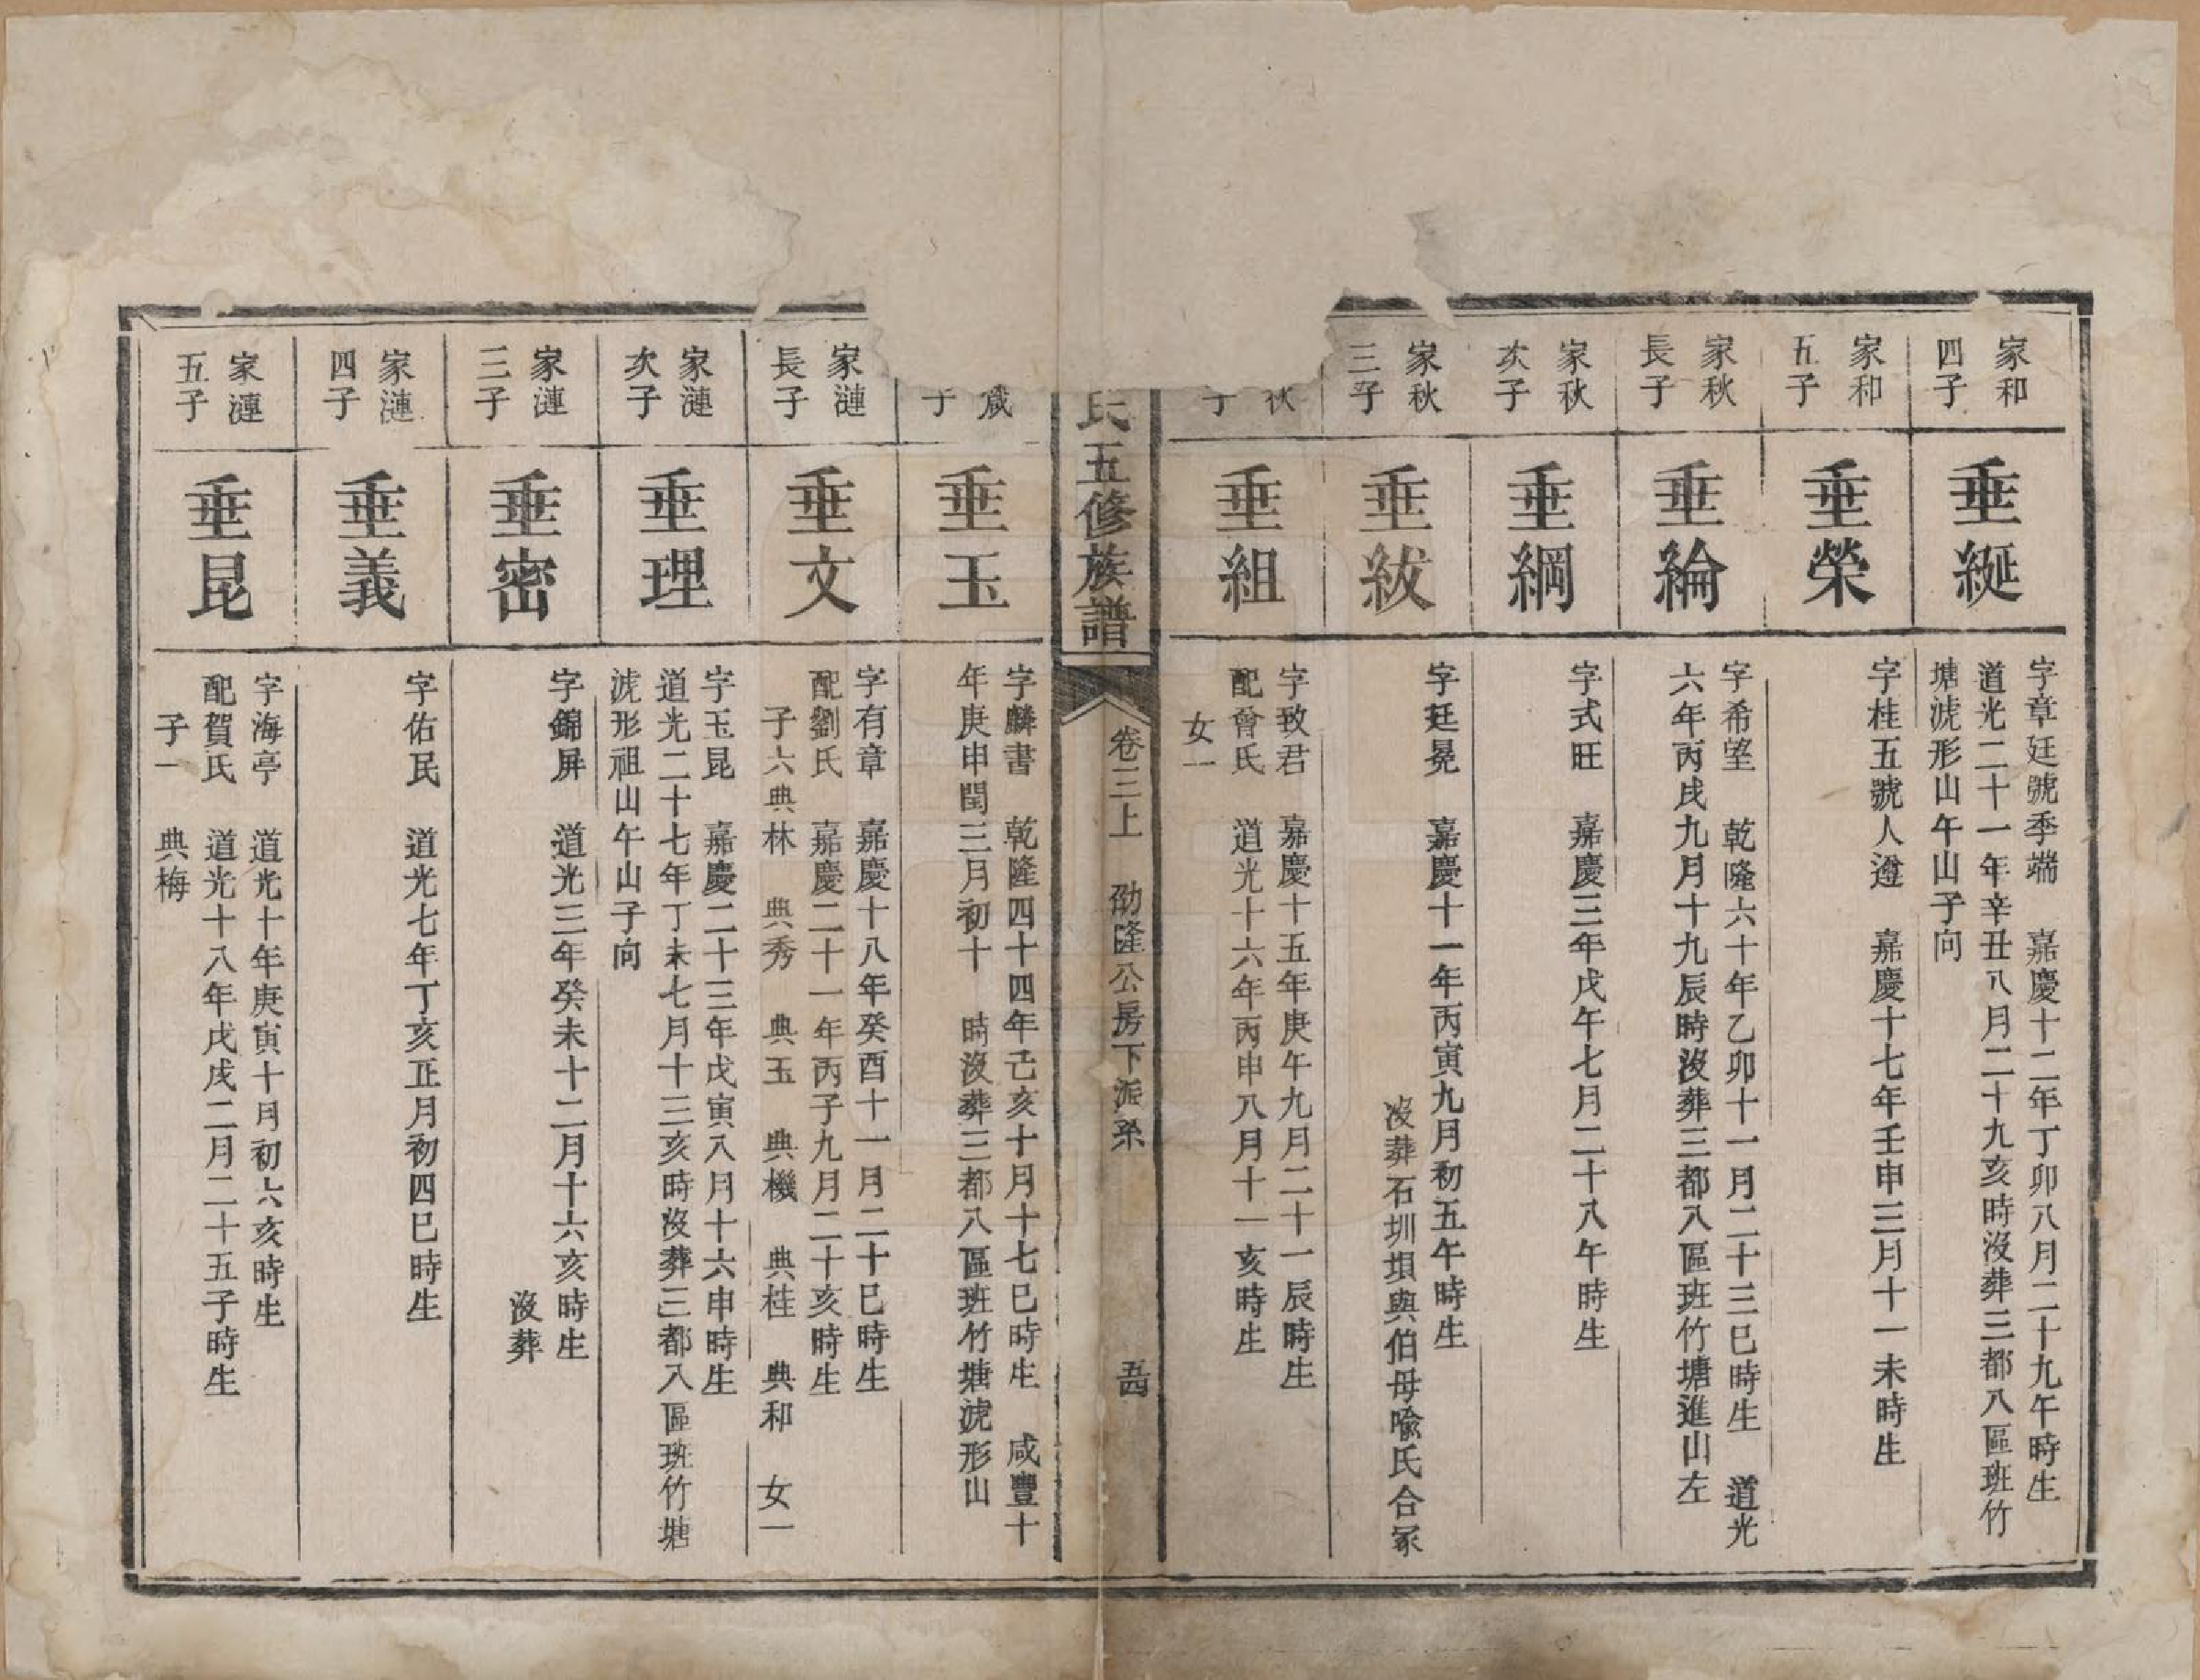 家和
四子
垂綖
字章廷號季端　嘉慶十二年丁卯八月二十九午時生
道光二十一年辛丑八月二十九亥時沒葬三都八區班竹
塘淲形山午山子向
家和
五子
垂榮
字桂五號人遵　嘉慶十七年壬申三月十一未時生
家秋
長子
垂綸
字希望　乾隆六十年乙卯十一月二十三巳時生　道光
六年丙戌九月十九辰時沒葬三都八區班竹塘進山左
家秋
次子
垂綱
字式旺　嘉慶三年戊午七月二十八午時生
家秋
三子
垂紱
字廷冕　嘉慶十一年丙寅九月初五午時生
沒葬石圳垻與伯母喻氏合冢
秋
子
垂組
字致君　嘉慶十五年庚午九月二十一辰時生
配曾氏　道光十六年丙申八月十一亥時生
女一
氏五修族譜
卷三上　劭隆公房下派系
五四
子
垂玉
字麟書　乾隆四十四年己亥十月十七巳時生　咸豐十
年庚申閏三月初十　時沒葬三都八區班竹塘淲形山
家漣
長子
垂文
字有章　嘉慶十八年癸酉十一月二十巳時生
配劉氏　嘉慶二十一年丙子九月二十亥時生
子六典林　典秀　典玉　典機　典桂　典和　女一
家漣
次子
垂理
字玉昆　嘉慶二十三年戊寅八月十六申時生
道光二十七年丁未七月十三亥時沒葬三都八區班竹塘
淲形祖山午山子向
家漣
三子
垂密
字錦屏　道光三年癸未十二月十六亥時生
沒葬
家漣
四子
垂義
字佑民　道光七年丁亥正月初四巳時生
家漣
五子
垂昆
字海亭　道光十年庚寅十月初六亥時生
配賀氏　道光十八年戊戌二月二十五子時生
子一　典梅